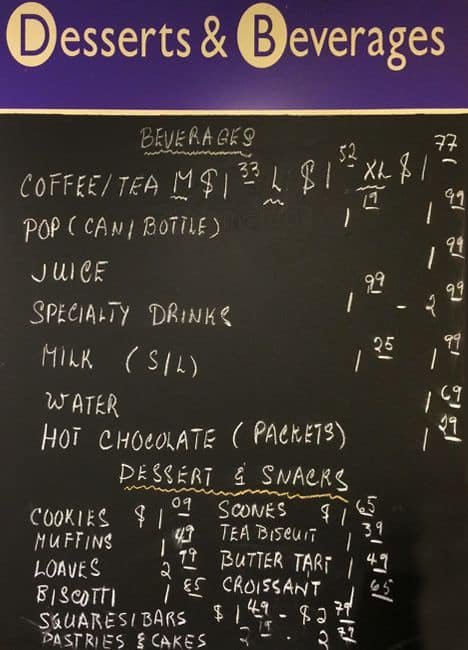 Desserts & Beverages
BEVERAGES
COFFEE/TEA M $1 33 L $1 52 XL $1 77
POP (CAN/BOTTLE) 1 19 1 99
JUICE 1 99
SPECIALTY DRINKS 1 99 - 2 99
MILK (S/L) 1 25 1 99
WATER 1 69
HOT CHOCOLATE (PACKETS) 1 29
DESSERT & SNACKS
COOKIES $1 09 SCONES $1 65
MUFFINS 1 49 TEA BISCUIT 1 39
LOAVES 2 79 BUTTER TART 1 49
BISCOTTI 1 85 CROISSANT 1 65
SQUARES/BARS $1 49 - $2 79
PASTRIES & CAKES 2 19 - 2 79